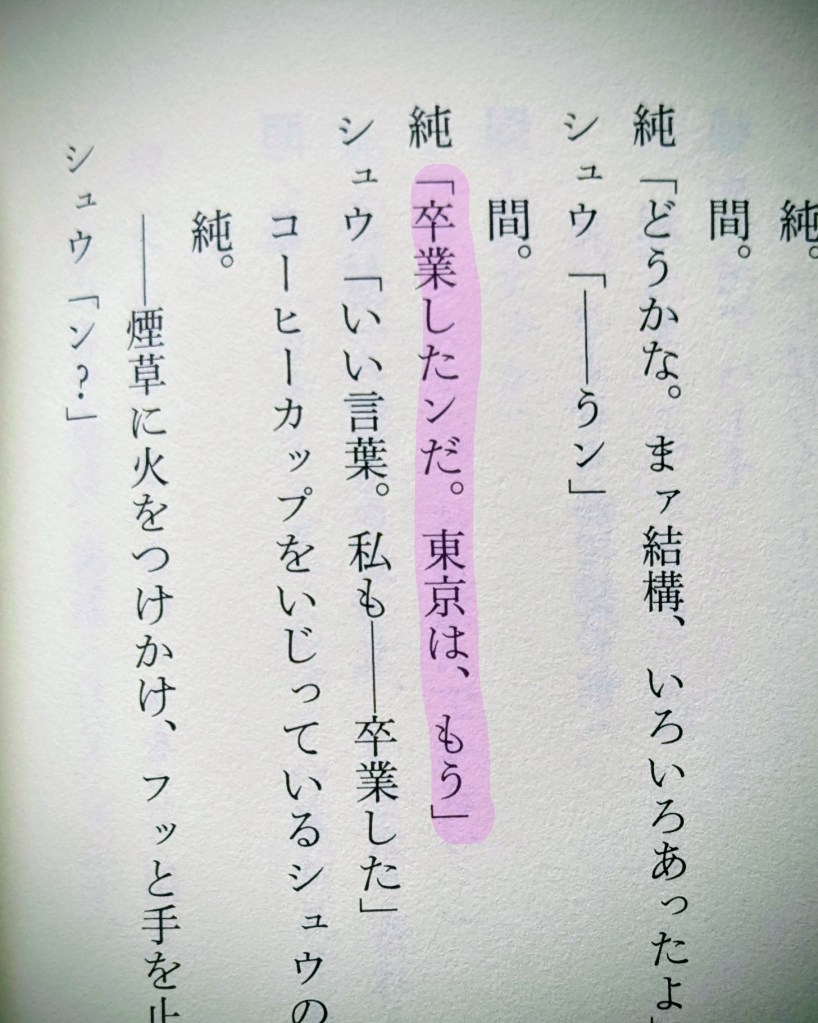 純。
間。
純「どうかな。まァ結構、いろいろあったよ」
シュウ「――うン」
間。
純「卒業したンだ。東京は、もう」
シュウ「いい言葉。私も――卒業した」
コーヒーカップをいじっているシュウの
純。
――煙草に火をつけかけ、フッと手を止
シュウ「ン?」